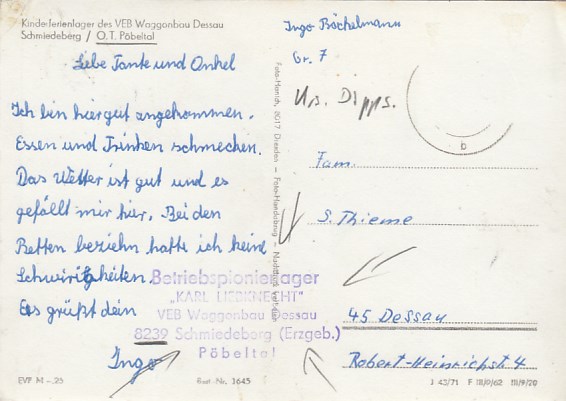 Kinderferienlager des VEB Waggonbau Dessau
Schmiedeberg / O.T. Pöbeltal
Liebe Tante und Onkel
Ich bin hier gut angekommen.
Essen und Trinken schmecken.
Das Wetter ist gut und es
gefällt mir hier. Bei den
Betten beziehn hatte ich keine
Schwiritgheiten.
Es grüßt dein
Ingo
Betriebspionierlager
„KARL LIEBKNECHT"
VEB Waggonbau Dessau
8239 Schmiedeberg (Erzgeb.)
Pöbeltal
EVP M -.25
Best. Nr. 1645
Foto-Hanich, 8017 Dresden — Foto-Handabzug — Nachdruck verboten
Ingo Böckelmann
Gr. 7
Krs. Dipps.
b
Fam.
S. Thieme
45 Dessau
Robert-Heinrichstr 4
J 43/71 F III/9/62 III/9/29